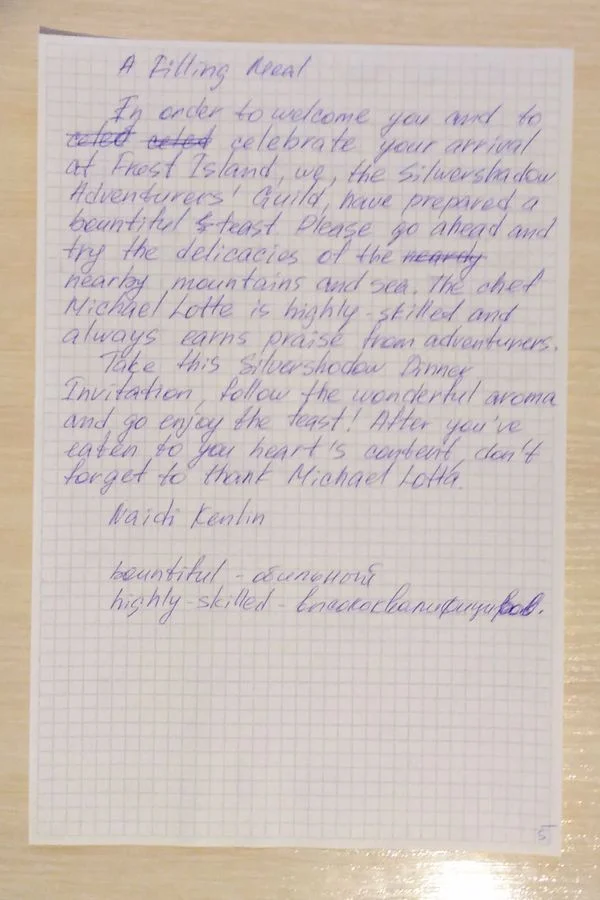 A Filling Meal
In order to welcome you and to
celebrate your arrival
at Frost Island, we, the Silvershadow
Adventurers' Guild, have prepared a
bountiful feast. Please go ahead and
try the delicacies of the neardy
nearby mountains and sea. The chef
Michael Lotte is highly-skilled and
always earns praise from adventurers.
Take this Silvershodow Dinner
Invitation, follow the wonderful aroma
and go enjoy the feast! After you've
eaten to you heart's content, don't
forget to thank Michael Lotta.
Naidi Kenlin
bountiful - обильный
highly-skilled - высококвалифициров.
5